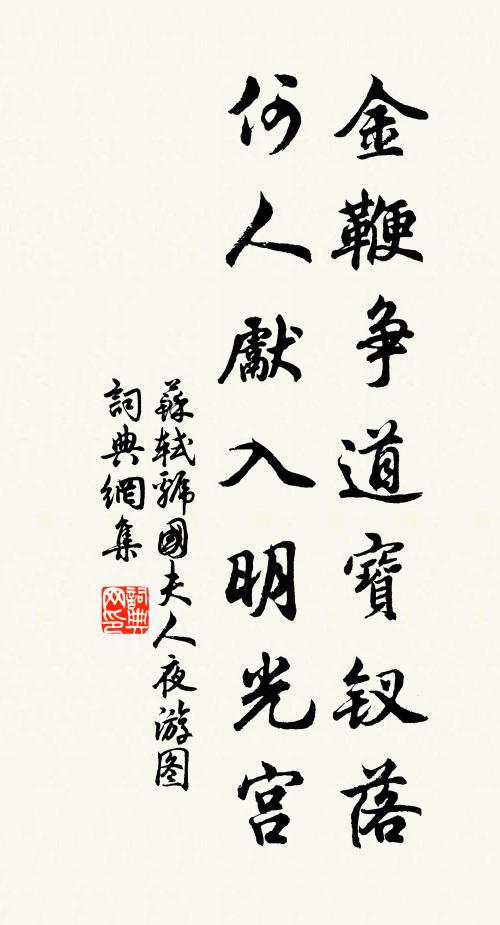 金鞭争道寶釵落
何人獻入明光宫
蘇軾虢國夫人夜游图
詞典網集
詞典网印